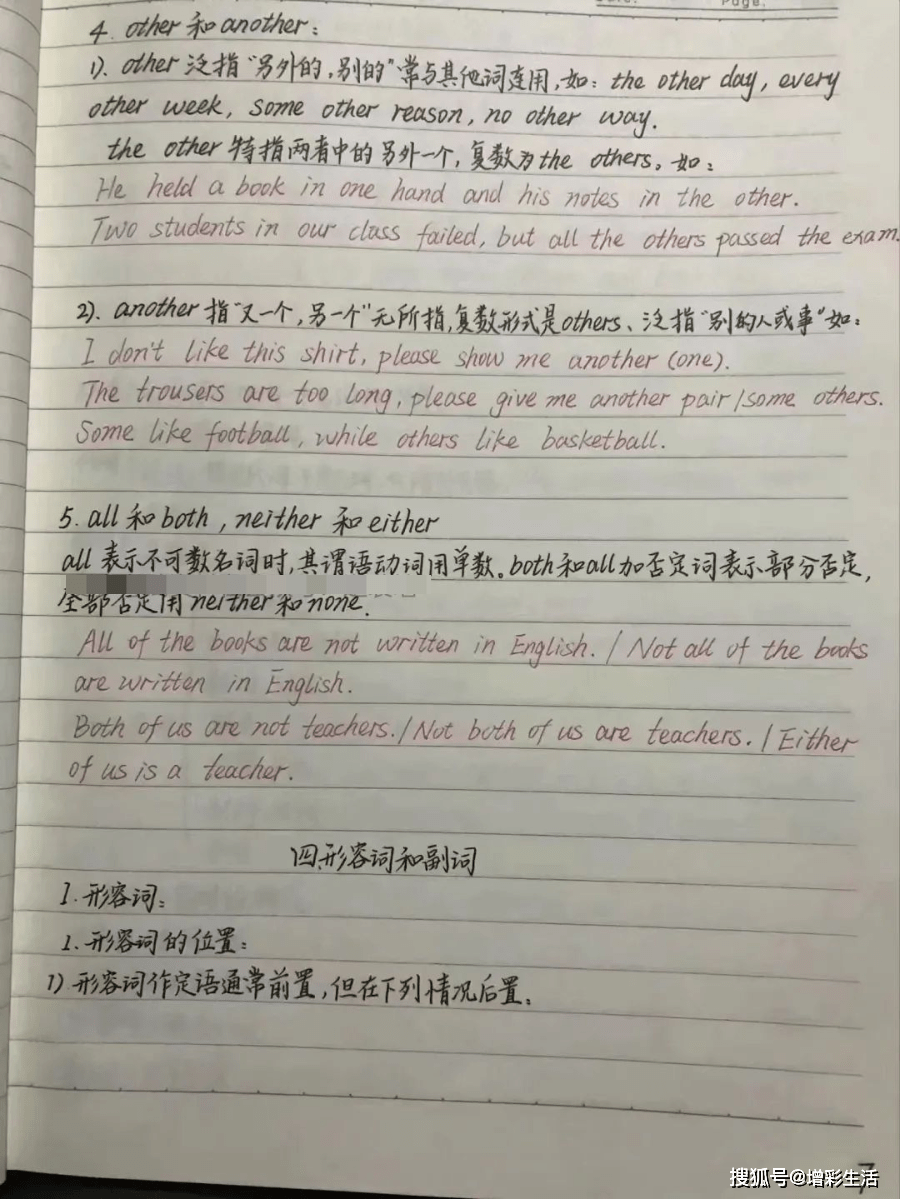 Page.
4. other 和 another：
1). other 泛指"另外的，别的"常与其他词连用，如：the other day, every
other week, some other reason, no other way.
the other 特指两者中的另外一个，复数为the others。如：
He held a book in one hand and his notes in the other.
Two students in our class failed, but all the others passed the exam.
2). another 指"又一个，另一个"无所指，复数形式是others、泛指"别的人或事"如：
I don't like this shirt, please show me another (one).
The trousers are too long, please give me another pair/some others.
Some like football, while others like basketball.
5. all 和 both, neither 和 either
all 表示不可数名词时，其谓语动词用单数。both和all加否定词表示部分否定，
全部否定用neither和none.
All of the books are not written in English. / Not all of the books
are written in English.
Both of us are not teachers. / Not both of us are teachers. / Either
of us is a teacher.
四.形容词和副词
I. 形容词：
1. 形容词的位置：
1) 形容词作定语通常前置，但在下列情况后置。
7
搜狐号@增彩生活